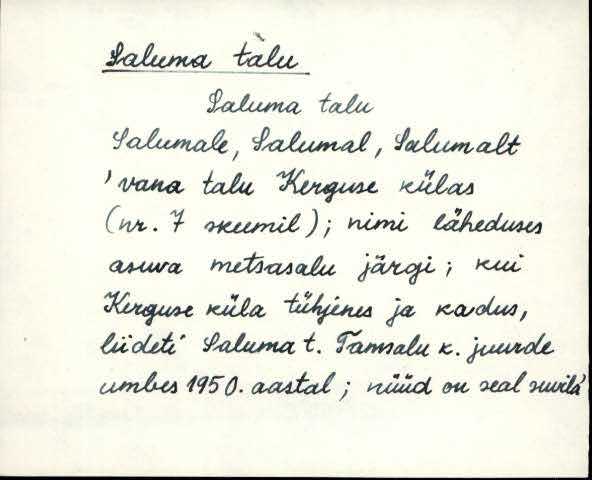 Saluma talu
Saluma talu
Salumale, Salumal, Salumalt
'vana talu Kerguse külas
(nr. 7 skeemil); nimi läheduses
asuva metsasalu järgi; kui
Kerguse küla tühjenes ja kadus,
liideti Saluma t. Tamsalu k. juurde
umbes 1950. aastal; nüüd on seal suvila'